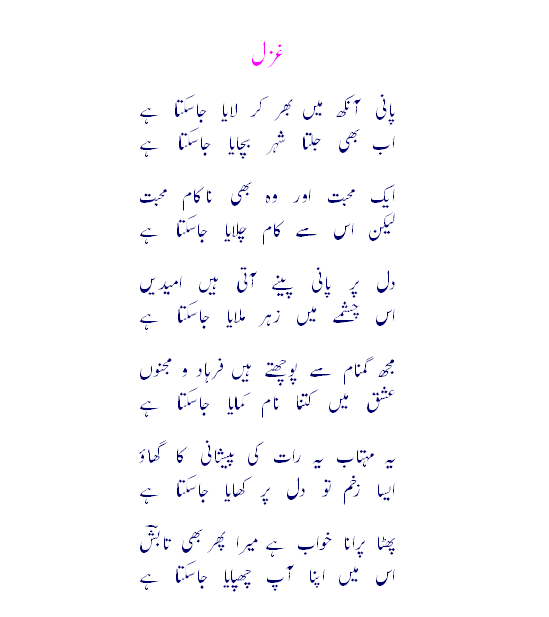 غزل
پانی آنکھ میں بھر کر لایا جاسکتا ہے
اب بھی جلتا شہر بچایا جاسکتا ہے
ایک محبت اور وہ بھی ناکام محبت
لیکن اس سے کام چلایا جاسکتا ہے
دل پر پانی پینے آتی ہیں امیدیں
اس چشمے میں زہر ملایا جاسکتا ہے
مجھ گمنام سے پوچھتے ہیں فرہاد و مجنوں
عشق میں کتنا نام کمایا جاسکتا ہے
یہ مہتاب یہ رات کی پیشانی کا گھاؤ
ایسا زخم تو دل پر کھایا جاسکتا ہے
پھٹا پرانا خواب ہے میرا پھر بھی تابشؔ
اس میں اپنا آپ چھپایا جاسکتا ہے